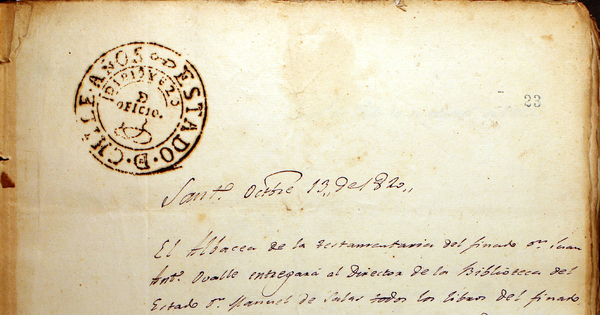 ESTADO D CHILE AÑOS
D
OFICIO.
23
Sant.º Octbre 13,, de 1820,,
El Albacea de la testamentaria del finado Dn. Juan
Ant.º Ovalle entregará al Director de la Biblioteca del
Estado Dn. Manuel de Salas todos los libros del finado